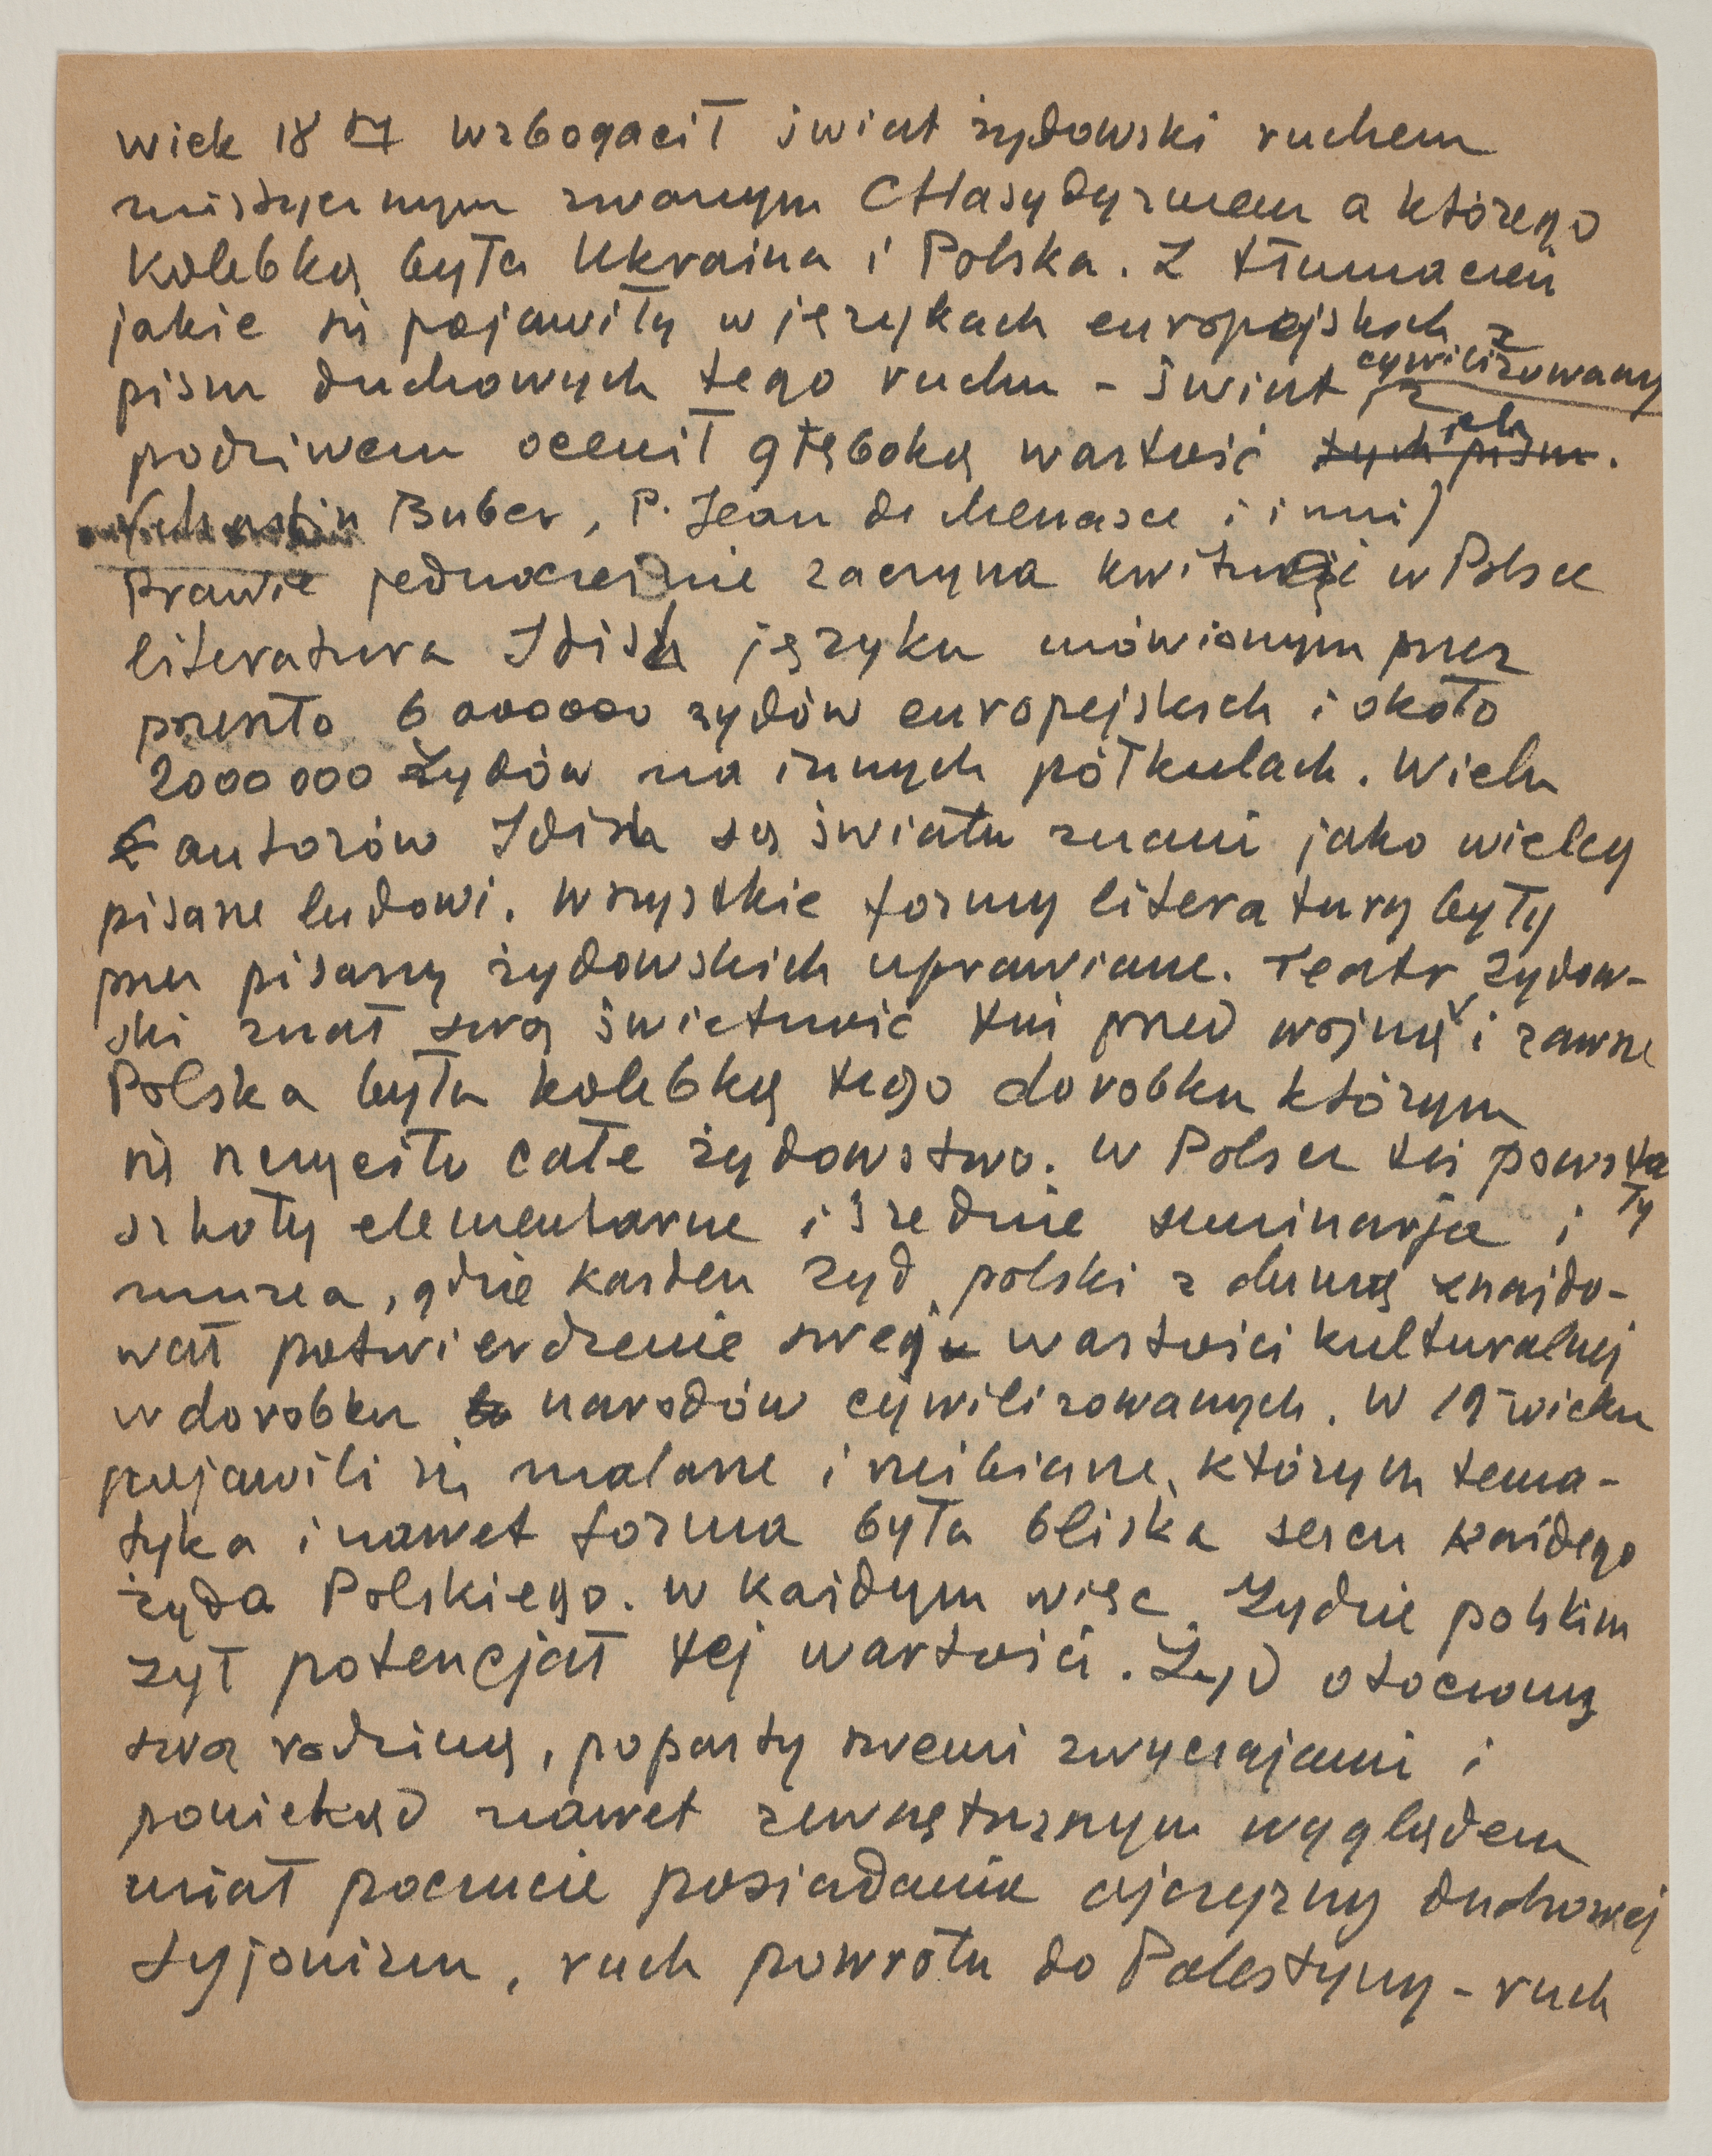 wiek 18 ty wzbogacił świat żydowski ruchem
mistycznym zwanym CHasydyzmem a którego
kolebką była Ukraina i Polska. Z tłumaczeń
jakie się pojawiły w językach europejskich z
pism duchowych tego ruchu – świat cywilizowany z
podziwem ocenił głęboką wartość tych pism ich.
Buber, P. Jean de Menasce i inni)
Prawie jednocześnie zaczyna kwitnąć w Polsce
literatura Idish języku mówionym przez
przeszło 6 000000 żydów europejskich i około
2000 000 Żydów na innych półkulach. Wielu
autorów Idish są światu znani jako wielcy
pisarze ludowi. Wszystkie formy literatury były
przez pisarzy żydowskich uprawiane. Teatr żydow-
ski znał swą świetność tuż przed wojną i zawsze
Polska była kolebką tego dorobku którym
się szczyciło całe żydowstwo. W Polsce też powsta
ły
szkoły elementarne i średnie seminarja i
muzea, gdzie każden żyd polski z dumą znajdo-
wał potwierdzenie swej wartości kulturalnej
w dorobku narodów cywilizowanych. W 19 wieku
pojawili się malarze i rzeźbiarze, których tema-
tyka i nawet forma była bliska sercu każdego
żyda Polskiego. W każdym więc Żydzie polskim
żył potencjał tej wartości. Żyd otoczony
swą rodziną, poparty swemi zwyczajami i
poniekąd nawet zewnętrznym wyglądem
miał poczucie posiadania ojczyzny duchowej
Syjonizm, ruch powrotu do Palestyny – ruch